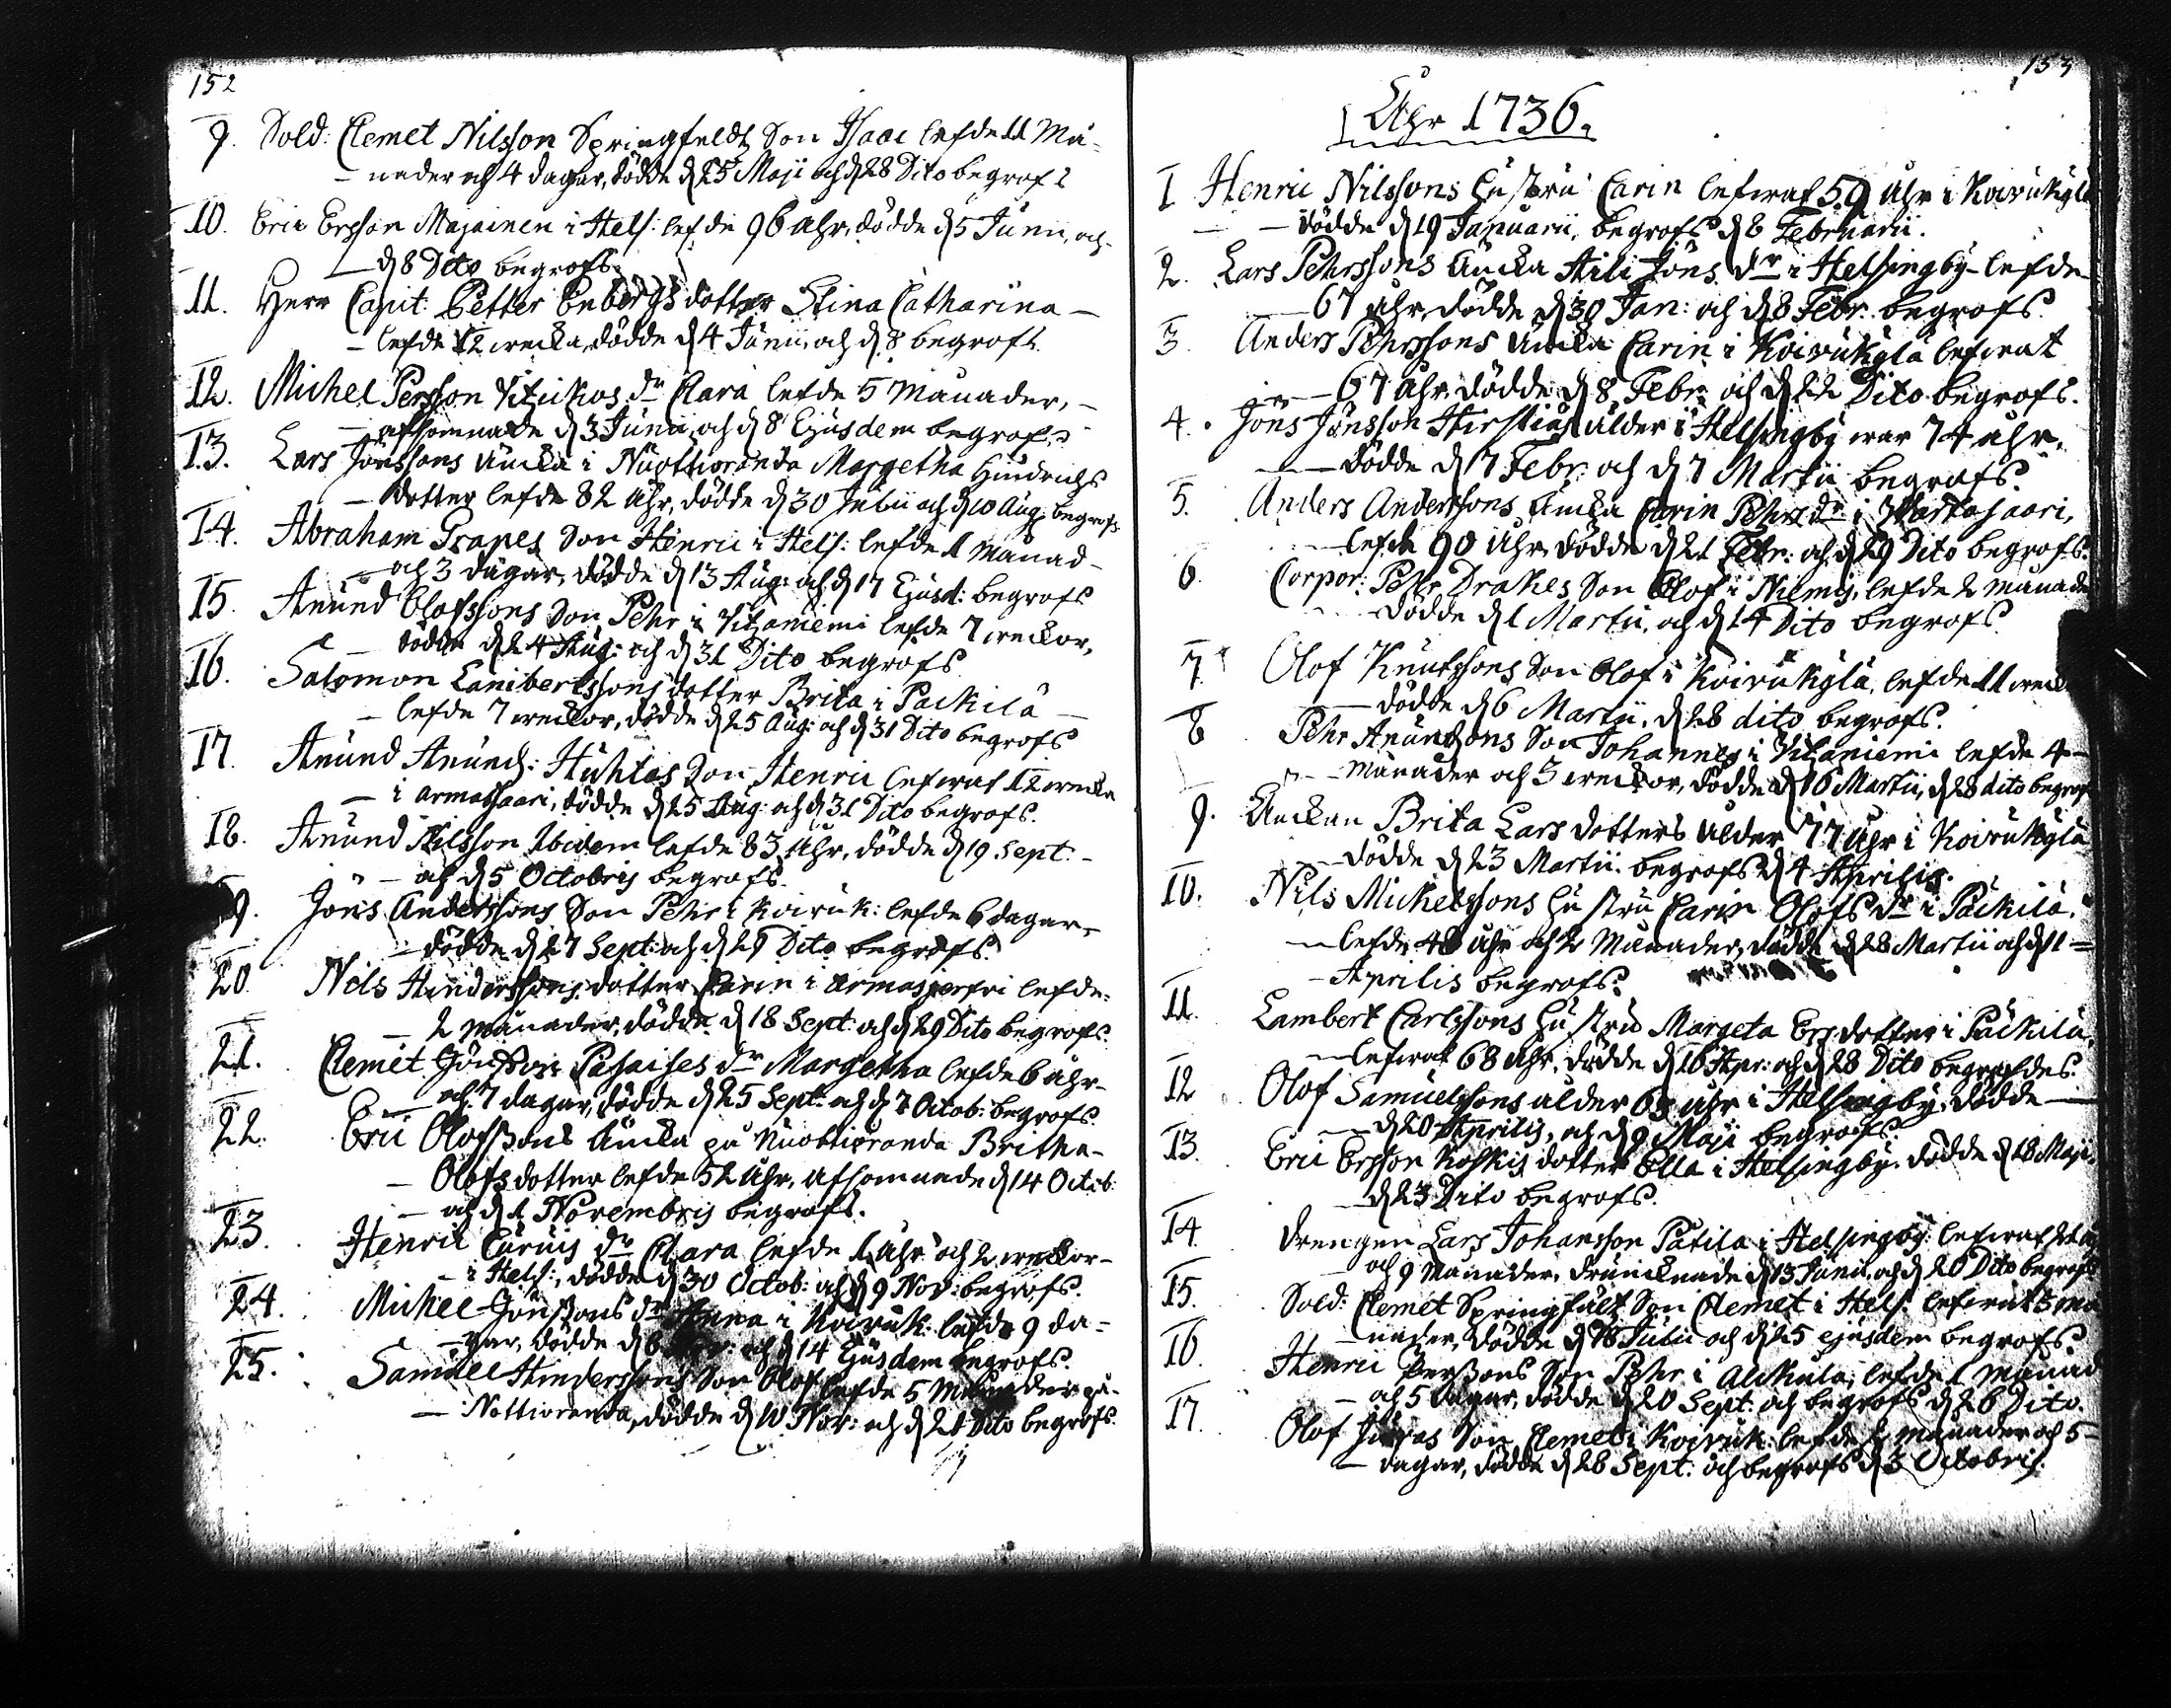 152
9. Sold: Clemet Nilsson Springfeldt Son Isaac lefde 11 Må-
nader och 4 dagar, dödde d 25 Maji och d 28 Dito begrofs
10. Eric Ersson Majainen i Hels: lefde 96 åhr, dödde d 5 Junii, och
d 8 Dito begrofs.
11. Herr Capit: Petter Enbergs dotter Stina Catharina
lefde 12 wecka, dödde d 4 Junii, och d 8 begrofs.
12. Michel Persson dr Clara lefde 5 Månader,
afsomnade d 3 Junii, och d 8 Ejusdem begrofs
13. Lars Jönssons äncka i Nuottioranda Margetha Hindrichs
dotter lefde 82 åhr, dödde d 30 Julii och d 10 Aug. begrofs
14. Abraham Grapes Son Henric i Hels: lefde 1 månad
och 3 dagar, dödde d 13 Aug: och d 17 Ejusd: begrofs
15 Anund Olofssons Son Pehr i Vitzaniemi lefde 7 weckor,
dödde d 24 Aug: och d 31 Dito begrofs
16. Salomon Lambertssons dotter Brita i Päckilä
lefde 7 weckor, dödde d 25 Aug: och d 31 Dito begrofs
17. Anund Anunds: Huhtas Son Henric lefwat 12 wecka
i armassaari, dödde d 25 Aug: och d 31 Dito begrofs.
18. Anund Nilsson Ibidem lefde 83 åhr, dödde d 19 Sept:
och d 5 Octobris begrofs.
9. Jöns Anderssons Son Pehr i Koiruk: lefde 6 dagar,
dödde d 27 Sept: och d 29 Dito begrofs.
20 Nils Hinderssons dotter Carin i lefde
2 månader, dödde d 18 Sept: och d 29 Dito begrofs.
21. Clemet Jönsson dr Margetha lefde 6 åhr
och 7 dagar, dödde d 25 Sept: och d Octob: begrofs.
22. Eric Olofssons äncka på Nuottioranda Britha
Olofsdotter lefde 52 åhr, afsomnade d 14 Octob:
och d 1 Novembris begrofs.
23. Henric dr Clara lefde 1 åhr och 2 weckor
i Hels:, dödde d 30 Octob: och d 9 Nov: begrofs.
24. Michel Jönssons dr Anna i Koiruk: lefde 9 da-
gar, dödde d 6 och d 14 Ejusdem begrofs.
25. Samuel Hinderssons Son Olof lefde 5 Månader på
Nottioranda, dödde d 10 Nov: och d 21 Dito begrofs.
153
Åhr 1736.
1 Henric Nilssons hustru Carin lefwat 59 åhr i Koirukylä
dödde d 19 Januarii, begrofs d 8 Februarii.
2. Lars Pehrssons äncka Jöns dr i Helsingby lefde
67 åhr, dödde d 30 Jan: och d 8 Febr: begrofs.
3. Anders Pehrssons äncka Carin i Koirukylä lefwat
67 åhr, dödde d 8 Febr: och d 22 Dito begrofs.
4. Jöns Jönsson ålder i Helsingby war 74 åhr,
dödde d 7 Febr: och d 7 Martii begrofs.
5. Anders Anderssons äncka Carin Pehrs dr i
lefde 90 åhr, dödde d 21 Febr: och d 29 Dito begrofs.
6. Corpor: Pehr Drakes Son Olof i Niemis, lefde 2 månade
dödde d 1 Martii, och d 14 Dito begrofs
7. Olof Knutssons Son Olof i Koirukylä, lefde 11 weck
dödde d 6 Martii, d 28 dito begrofs.
8 Pehr Anundsons Son Johannes i Vitzaniemi lefde 4
månader och 3 weckor, dödde d 16 Martii, d 28 dito begrofs
9. Änckan Brita Lars dotters ålder 77 åhr i Koirukylä
dödde d 23 Martii, begrofs d 4 Aprilis.
10. Nils Michelssons hustru Carin Olofs dr i Päckilä,
lefde 48 åhr och 2 Månader, dödde d 28 Martii och d 11
Aprilis begrofs.
11. Lambert Carlssons hustru Margeta Ers dotter i Päckilä,
lefwat 68 åhr, dödde d 16 Apr: och d 28 Dito begrofdes.
12 Olof Samuelssons ålder åhr i Helsingby, dödde
d 20 Aprilis, och d 9 Maji begrofs.
13. Eric Ersson Koskis dotter Ella i Helsingby, dödde d 18 Maji,
d 23 Dito begrofs.
14. Drengen Lars Johansson Patila i Helsingby lefwat 21
och 9 Månader, drunknade d 13 Junii, och d 20 Dito begrofs
15. Sold: Clemet Springfält Son Clemet i Hels: lefwat 3 må
nader, dödde d 18 Julii och d 25 ejusdem begrofs
16. Henric Perssons Son Pehr i Alckula, lefde 1 månad
och 5 dagar, dödde d 20 Sept: och begrofs d 26 Dito.
17. Olof Son Clemet i Koiruk: lefde 2 månader och 5
dagar, dödde d 26 Sept: och begrofs d 3 Octobris.